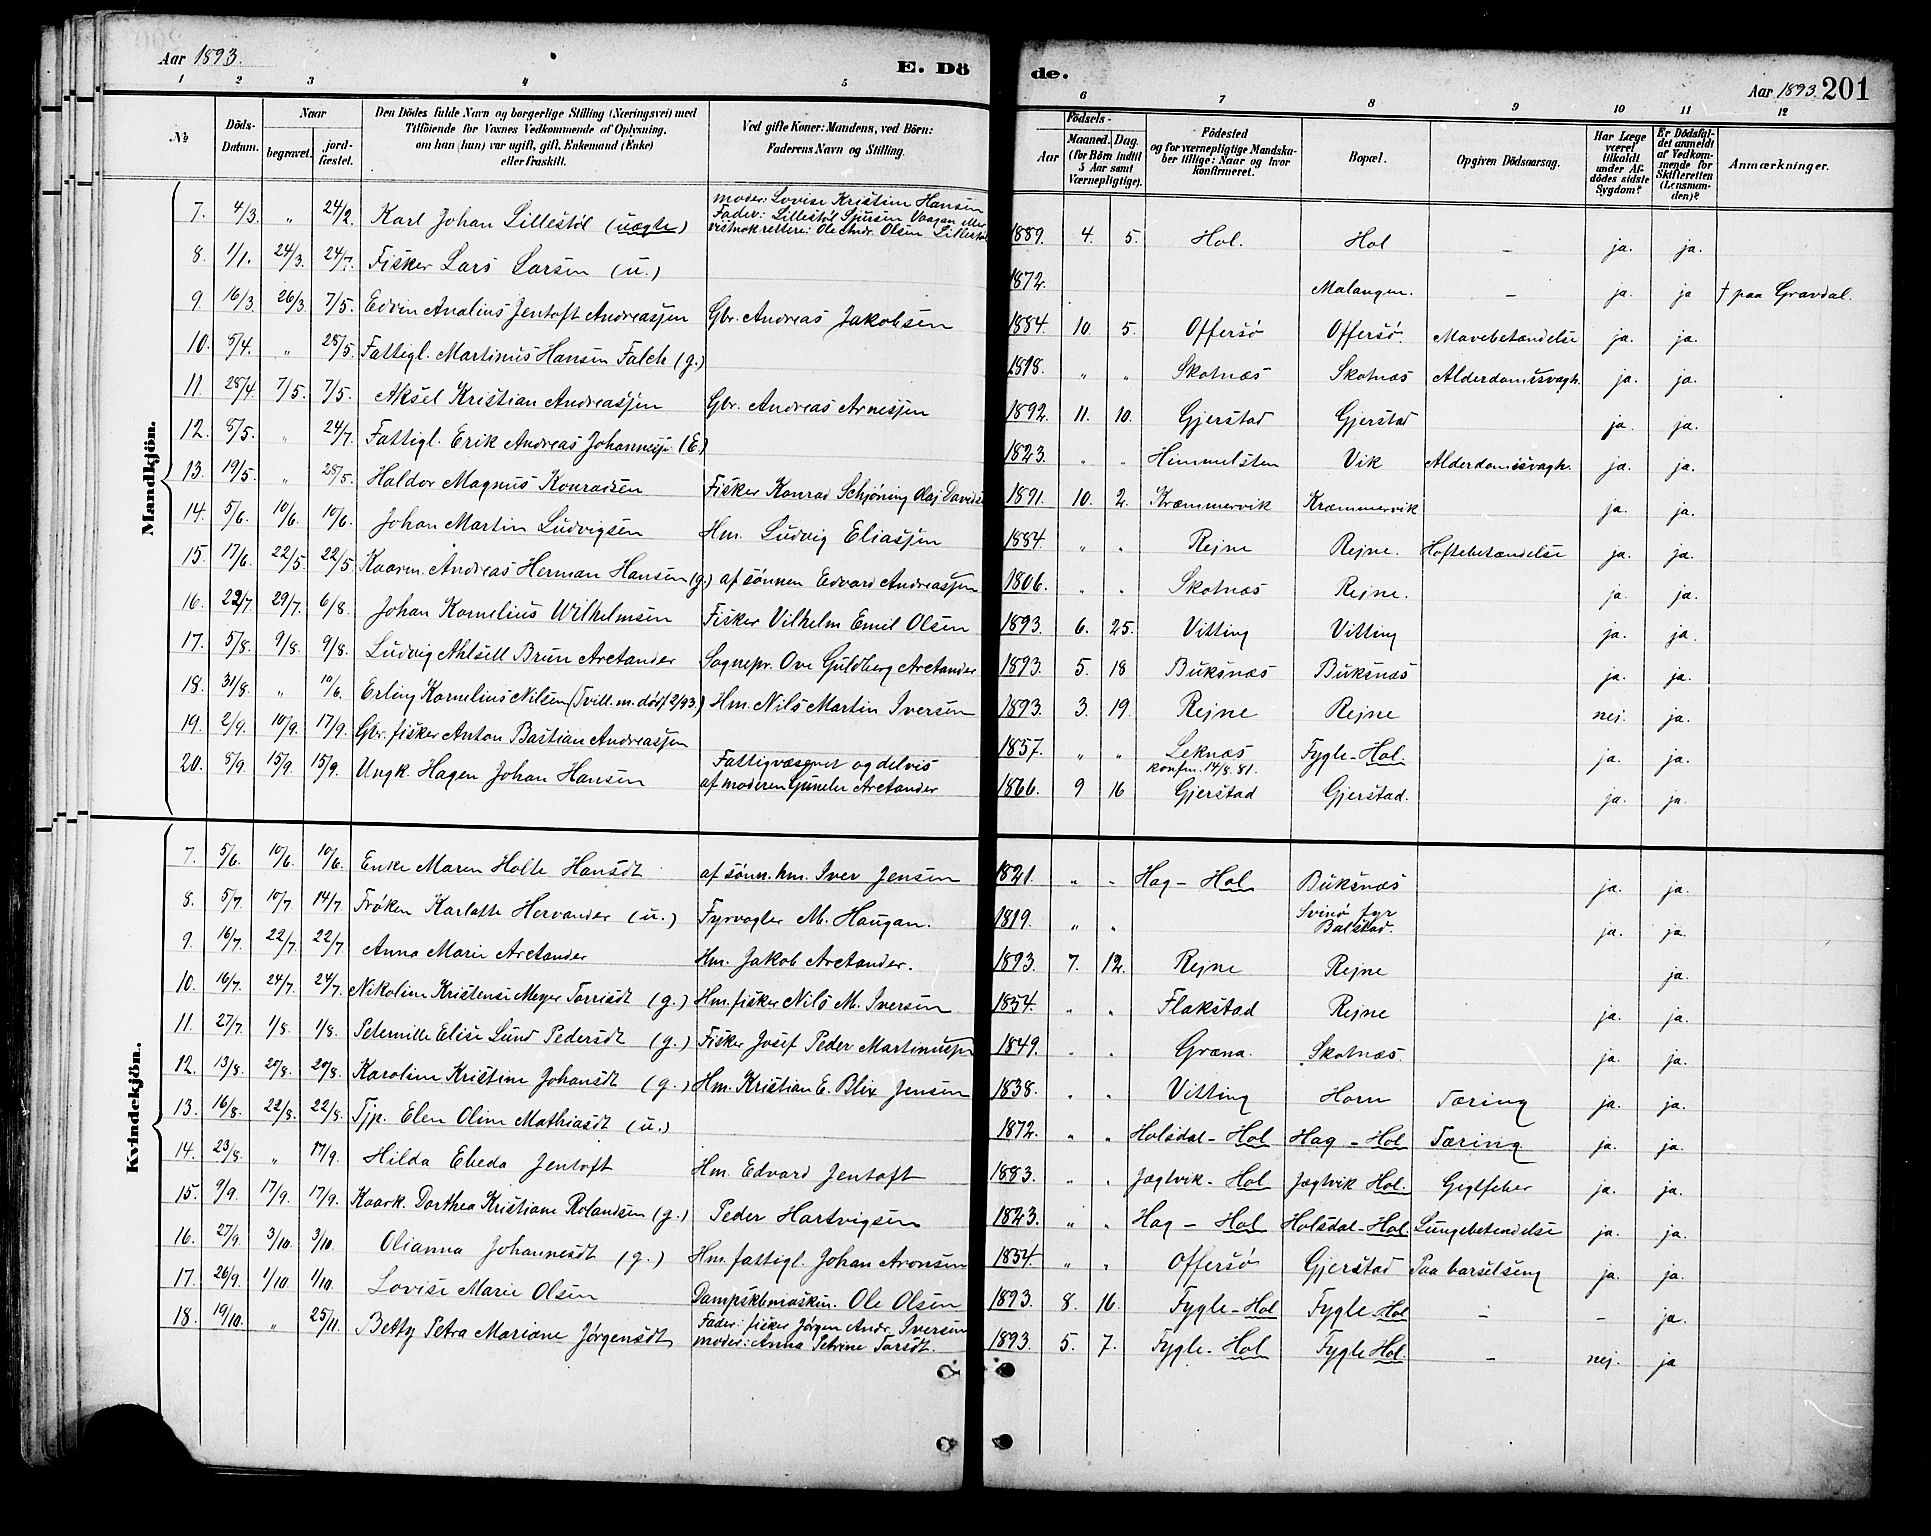 Aar 1893.
E. Dö
de.
Aar 1893. 201
1 2 3 4 5 6 7 8 9 10 11 12
№
Döds-Datum.
Naar
begravet.
jordfæstet.
Den Dödes fulde Navn og borgerlige Stilling (Næringsvei) med
Tilföiende for Voxnes Vedkommende af Oplysning,
om han (hun) var ugift, gift, Enkemand (Enke)
eller fraskilt.
Ved gifte Koner: Mandens, ved Börn:
Faderens Navn og Stilling.
Födsels-
Aar
Maaned. Dag.
(for Börn indtil
5 Aar samt
Værnepligtige).
Födested
og for værnepligtige Mandskaber tillige: Naar og hvor
konfirmeret.
Bopæl.
Opgiven Dödsaarsag.
Har Læge
været
tilkaldt
under Afdödes sidste
Sygdom?
Er Dödsfaldet anmeldt
af Vedkommende for
Skifteretten
(Lensmanden)?
Anmærkninger.
Mandkjön.
7. 4/3. " 24/2. Karl Johan Lillestöl (uægte) moder: Lovise Kristine Hansen Fader: Lillestöl Sjursen Vaagan eller vistnok rettere: Ole Andr. Olsen Lillestöl 1889. 4. 5. Hol. Hol – ja. ja.
8. 1/1. 24/3. 24/7. Fisker Lars Larsen (u.) 1872. Malangen. – ja. ja † paa Gravdal.
9. 16/3. 26/3. 7/5. Edvin Analius Jentoft Andreassen Gbr. Andreas Jakobsen 1884. 10. 5. Offersø Offersø. Mavebetændelse ja. ja.
10. 5/4. " 28/5. Fattigl. Martinus Hansen Falch (g.) 1818. " " Skotnæs Skotnæs Alderdomssvagh. ja. ja.
11. 28/4. 7/5. 7/5. Aksel Kristian Andreassen Gbr. Andreas Arnessen 1892. 11. 10. Gjerstad Gjerstad ja. ja.
12. 5/5. " 24/7. Fattigl. Erik Andreas Johanness. (E.) 1823. " " Himmelsten Vik Alderdomssvagh. ja. ja.
13. 19/5. " 28/5. Haldor Magnus Konradsen Fisker Konrad Schjöning Olaj Davids. 1891. 10. 2. Kræmmervik Kræmmervik ja. ja.
14. 5/6. 10/6. 10/6. Johan Martin Ludvigsen Hm. Ludvig Eliassen 1884. " " Rejne Rejne. Hoftebetændelse ja. ja.
15. 17/6. 22/5. 22/5 Kaarm. Andreas Herman Hansen (g.) af sønnen Edvard Andreassen 1806. " " Skotnæs Rejne. ja. ja.
16. 22/7 29/7. 6/8. Johan Kornelius Wilhelmsen Fisker Vilhelm Emil Olsen 1893. 6. 25. Vitting Vitting ja. ja.
17. 5/8. 9/8. 9/8. Ludvig Ahlsell Brun Arctander Sognepr. Ove Guldberg Arctander 1893. 5. 18 Buksnæs Buksnæs ja. ja.
18. 31/8. " 10/6. Erling Kornelius Nilsen (Tvill. m. død 1/2/93.) Hm. Nils Martin Iversen 1893. 3. 19. Rejne Rejne nej. ja.
19. 2/9. 10/9. 17/9. Gbr. fisker Anton Bastian Andreassen 1857. " " Leknæs Fygle-Hol. ja. ja.
20. 5/9. 15/9. 15/9. Ungk. Hagen Johan Hansen Fattigvæsenet og delvis af moderen Arctander 1866. 9 16 konfm. 14/8. 81. Gjerstad Gjerstad. ja. ja.
Kvindekjön.
7. 5/6. 10/6. 10/6. Enke Maren Holte Hansdt af sønn. hm. Iver Jensen 1821. " " Hag – Hol Buksnæs ja. ja.
8. 5/7. 10/7 14/7 Frøken Karlotte Hervander (u.) Fyrvogter M. Haugan. 1819. " " Svinø fyr Balstad. ja. ja.
9. 16/7. 22/7. 22/7 Anna Marie Arctander Hm. Jakob Arctander. 1893. 7. 12. Rejne Rejne ja.
10. 16/7. 24/7. 24/7. Nikoline Kristense Meyer Torrisdt (g.) Hm. fisker Nils M. Iversen 1854. " " Flakstad Rejne ja. ja.
11. 27/7. 1/8. 1/8. Peternille Elise Lund Pedersdt (g.) Fisker Josef Peder Martinussen 1849. " " Græna. Skotnæs. ja. ja.
12. 13/8. 20/8. 20/8. Karoline Kristine Johansdt (g.) Hm. Kristian E. Blix Jensen 1838. " " Vitting Horn Tæring ja. ja.
13. 16/8. 22/8. 22/8. Tjp. Elen Oline Mathiasdt (u.) 1872. " " Holsdal-Hol Hag – Hol Tæring ja. ja.
14. 23/8. " 17/9. Hilda Eheda Jentoft Hm. Edvard Jentoft 1883. " " Jægtvik-Hol Jægtvik Hol. Gigtfeber ja. ja.
15. 9/9. 17/9. 17/9. Kaark. Dorthea Kristiane Rolandsen (g.) Peder Hartvigsen 1823. " " Hag – Hol Holsdal-Hol Lungebetendelse ja. ja.
16. 27/9. 3/10. 3/10. Olianna Johannesdt (g.) Hm. fattigl. Johan Aronsen 1854. " " Offersø Gjerstad Paa barselseng ja. ja.
17. 26/9. 1/10. 1/10. Lovise Marie Olsen Dampskbmaskin. Ole Olsen 1893. 8. 16. Fygle-Hol Fygle-Hol – – ja.
18. 19/10. " 25/11. Betty Petra Mariane Jørgensdt Fader: fisker Jørgen Andr. Iversen moder: Anna Petrine Torsdt. 1893. 5. 7. Fygle-Hol Fygle Hol. – nej. ja